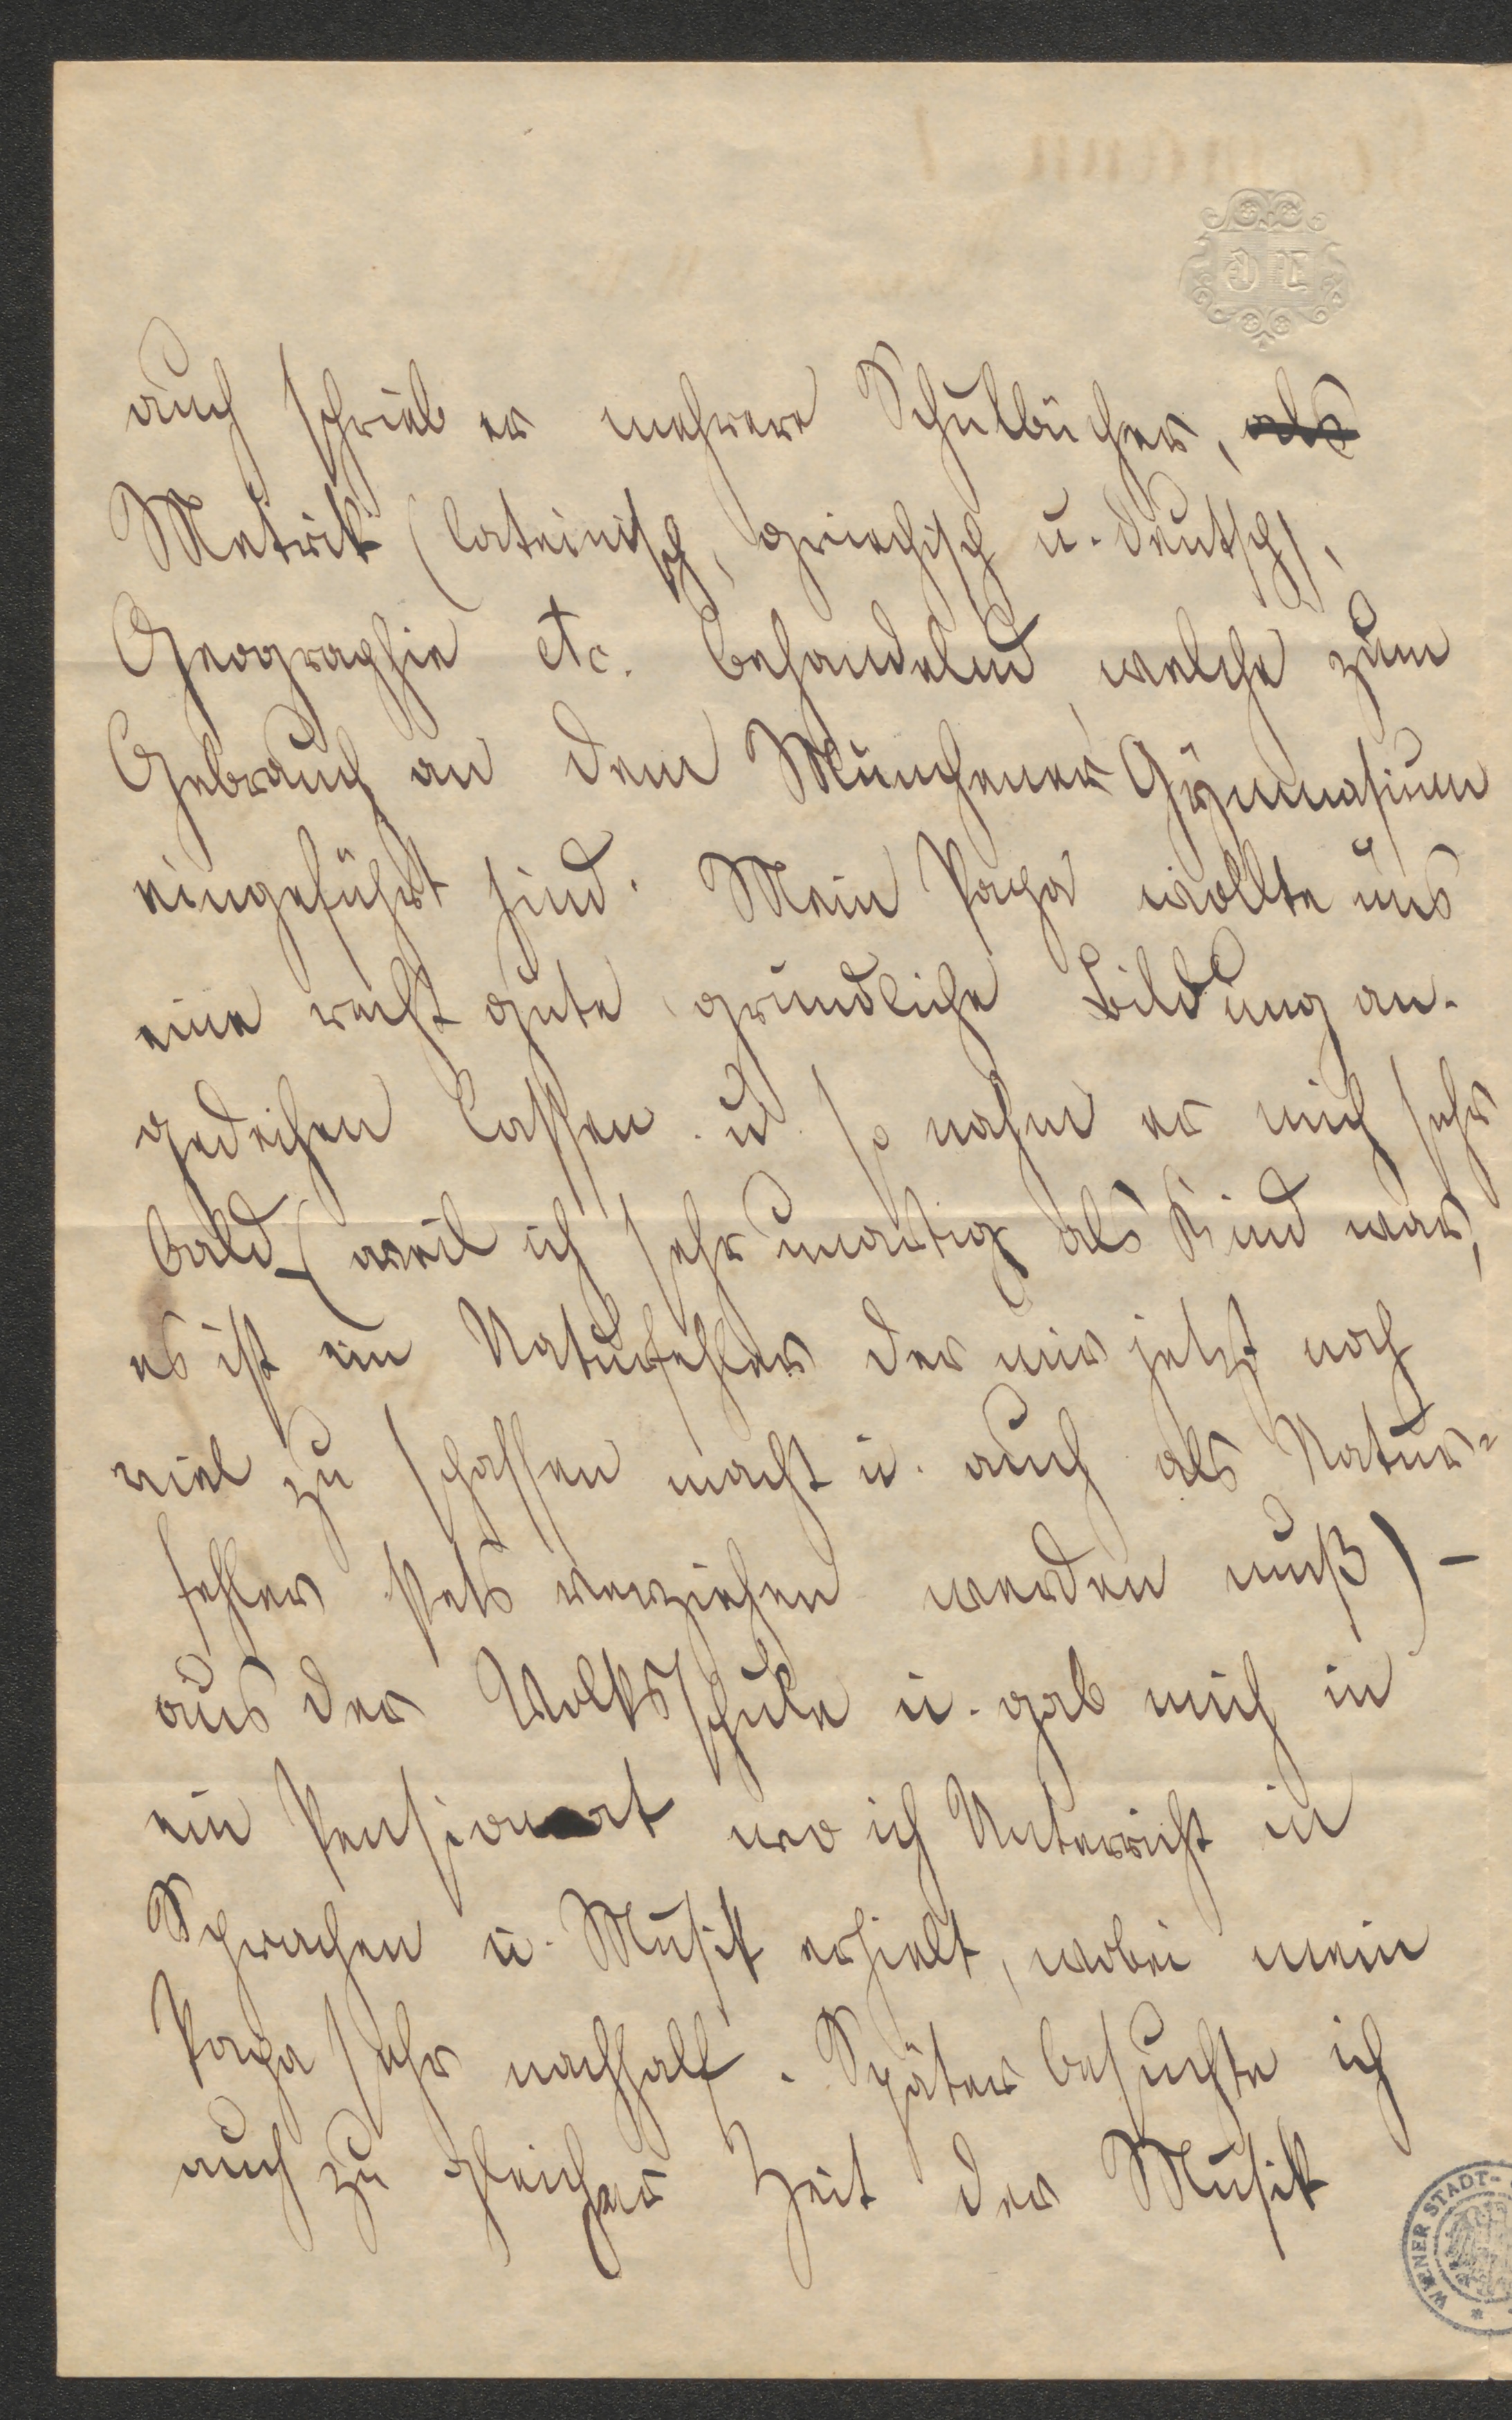 auch schrieb er mehrere Schulbücher, als
Metrik (lateinisch, griechisch u. deutsch),
Geographie etc. behandelnd, welche zum
Gebrauch an dem Münchener Gymnasium
eingeführt sind. Mein Papa wollte uns
eine recht gute gründliche Bildung an-
gedeihen lassen u. so nahm er mich sehr
bald (weil ich sehr unartig als Kind war,
es ist ein Naturfehler der mir jetzt noch
viel zu schaffen macht u. auch als Natur=
fehler stets verziehen werden muß) –
aus der Volksschule u. gab mich in
ein Pensionat wo ich Unterricht in
Sprachen u. Musik erhielt, wobei mein
Papa sehr nachhalf. Später besuchte ich
auch zu gleicher Zeit der Musik
WIENER STADT-